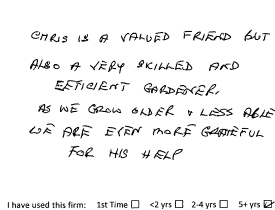 CHRIS IS A VALUED FRIEND BUT
ALSO A VERY SKILLED AND
EFFICIENT GARDENER,
AS WE GROW OLDER & LESS ABLE
WE ARE EVEN MORE GRATEFUL
FOR HIS HELP
I have used this firm: 1st Time ☐ <2 yrs ☐ 2-4 yrs ☐ 5+ yrs ☑